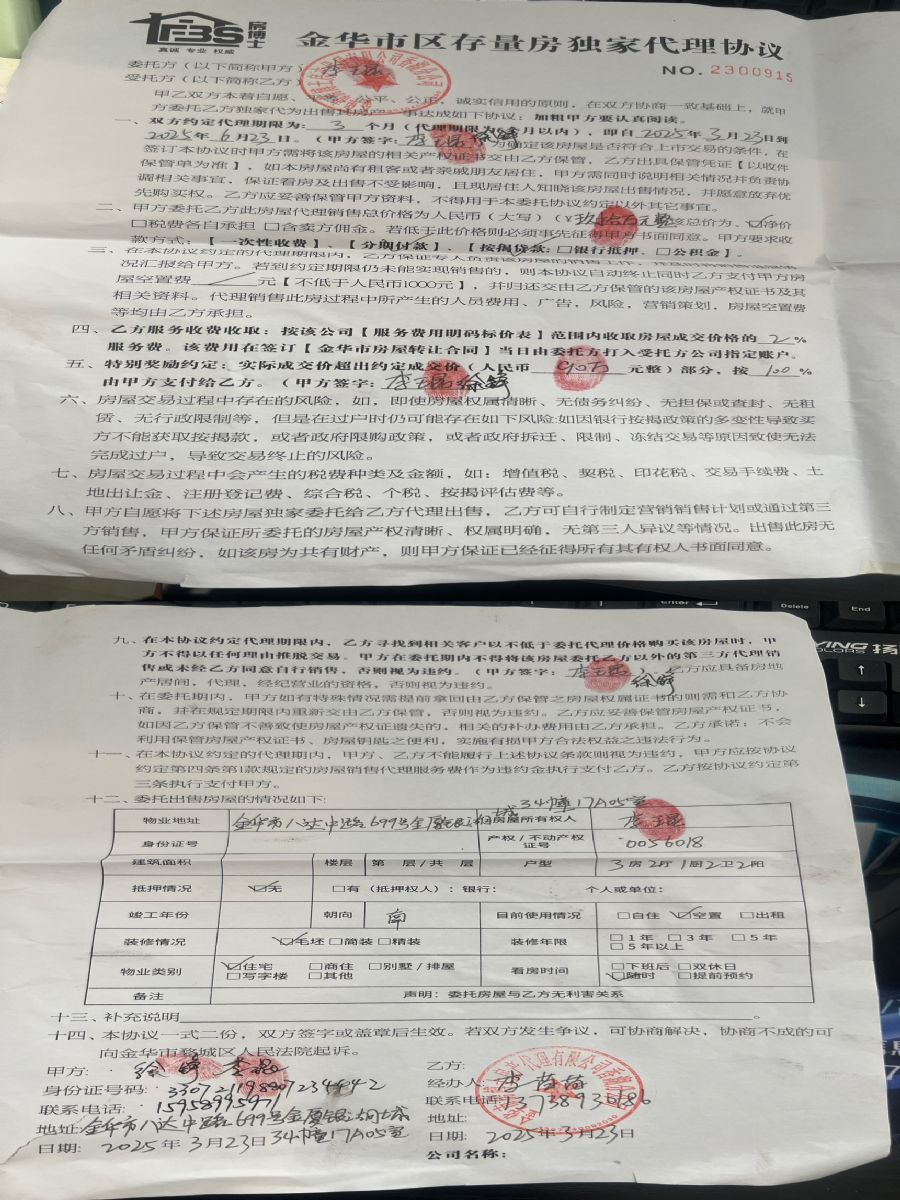 FBS
房博士
真诚 专业 权威
金华市区存量房独家代理协议
NO. 2300915
委托方（以下简称甲方）
受托方（以下简称乙方）
甲乙双方本着自愿、平等、公平、公正，诚实信用的原则，在双方协商一致基础上，就甲
方委托乙方独家代为出售其房产 事达成如下协议：加粗甲方要认真阅读。
一、双方约定代理期限为: 3 个月（代理期限为 个月以内），即自2025年3月23日到
2025年6月23日。（甲方签字: 为确定该房屋是否符合上市交易的条件，在
签订本协议时甲方需将该房屋的相关产权证书交由乙方保管，乙方出具保管凭证【以收件
保管单为准】，如本房屋尚有租客或者亲戚朋友居住，甲方需同时说明相关情况并负责协
调相关事宜，保证看房及出售不受影响，且现居住人知晓该房屋出售情况，并愿意放弃优
先购买权。乙方应妥善保管甲方资料，不得用于本委托协议约定以外其它事宜。
二、甲方委托乙方此房屋代理销售总价格为人民币（大写）（¥玖拾万元整 该总价为、☑净价
□税费各自承担 □含卖方佣金。若低于此价格则必须事先征得甲方书面同意。甲方要求收
款方式:【一次性收费】、【分期付款】、【按揭贷款: □银行抵押、□公积金】。
三、在本协议约定的代理期限内，乙方保证专人负责该房屋的销售工作，
况汇报给甲方。若到约定期限仍未能实现销售的，则本协议自动终止同时乙方支付甲方房
屋空置费 元【不低于人民币1000元】，并归还交由乙方保管的该房屋产权证书及其
相关资料。代理销售此房过程中所产生的人员费用、广告，风险，营销策划，房屋空置费
等均由乙方承担。
四、乙方服务收费收取：按该公司【服务费用明码标价表】范围内收取房屋成交价格的 2 %
服务费。该费用在签订【金华市房屋转让合同】当日由委托方打入受托方公司指定账户。
五、特别奖励约定：实际成交价超出约定成交价（人民币 90万 元整）部分，按 100 %
由甲方支付给乙方。（甲方签字:
六、房屋交易过程中存在的风险，如，即使房屋权属清晰、无债务纠纷、无担保或查封、无租
赁、无行政限制等，但是在过户时仍可能存在如下风险:如因银行按揭政策的多变性导致买
方不能获取按揭款，或者政府限购政策，或者政府拆迁、限制、冻结交易等原因致使无法
完成过户，导致交易终止的风险。
七、房屋交易过程中会产生的税费种类及金额，如：增值税、契税、印花税、交易手续费、土
地出让金、注册登记费、综合税、个税、按揭评估费等。
八、甲方自愿将下述房屋独家委托给乙方代理出售，乙方可自行制定营销销售计划或通过第三
方销售，甲方保证所委托的房屋产权清晰、权属明确，无第三人异议等情况。出售此房无
任何矛盾纠纷，如该房为共有财产，则甲方保证已经征得所有其有权人书面同意。
九、在本协议约定代理期限内，乙方寻找到相关客户以不低于委托代理价格购买该房屋时，甲
方不得以任何理由推脱交易。甲方在委托期内不得将该房屋委托乙方以外的第三方代理销
售或未经乙方同意自行销售，否则视为违约。（甲方签字: 乙方应具备房地
产居间，代理，经纪营业的资格，否则视为违约。
十、在委托期内，甲方如有特殊情况需提前拿回由乙方保管之房屋权属证书的则需和乙方协
商，并在规定期限内重新交由乙方保管，否则视为违约。乙方应妥善保管房屋产权证书，
如因乙方保管不善致使房屋产权证遗失的，相关的补办费用由乙方承担。乙方承诺：不会
利用保管房屋产权证书、房屋钥匙之便利，实施有损甲方合法权益之违法行为。
十一、在本协议约定的代理期内，甲方、乙方不能履行上述协议条款则视为违约，甲方应按协议
约定第四条第1款规定的房屋销售代理服务费作为违约金执行支付乙方。乙方按协议约定第
三条执行支付甲方。
十二、委托出售房屋的情况如下:
物业地址 金华市八达中路699号金厦银湖城34幢17A05室 房屋所有权人
身份证号 产权/不动产权证号 0056018
建筑面积 楼层 第 层/共 层 户型 3房2厅1厨2卫2阳
抵押情况 ☑无 □有（抵押权人）：银行： 个人或单位：
竣工年份 朝向 南 目前使用情况 □自住 ☑空置 □出租
装修情况 ☑毛坯 □简装 □精装 装修年限 □1年 □3年 □5年 □5年以上
物业类别 ☑住宅 □商住 □别墅/排屋 □写字楼 □其他 看房时间 □下班后 □双休日 ☑随时 □提前预约
备注 声明：委托房屋与乙方无利害关系
十三、补充说明 。
十四、本协议一式二份，双方签字或盖章后生效。若双方发生争议，可协商解决，协商不成的可
向金华市婺城区人民法院起诉。
甲方:
乙方:
身份证号码:
经办人:
联系电话: 15958995971
联系电话: 13738936186
地址: 金华市八达中路699号金厦银湖城
34幢17A05室
地址:
日期: 2025年3月23日
日期: 2025年3月23日
公司名称:
Enter
Delete
End